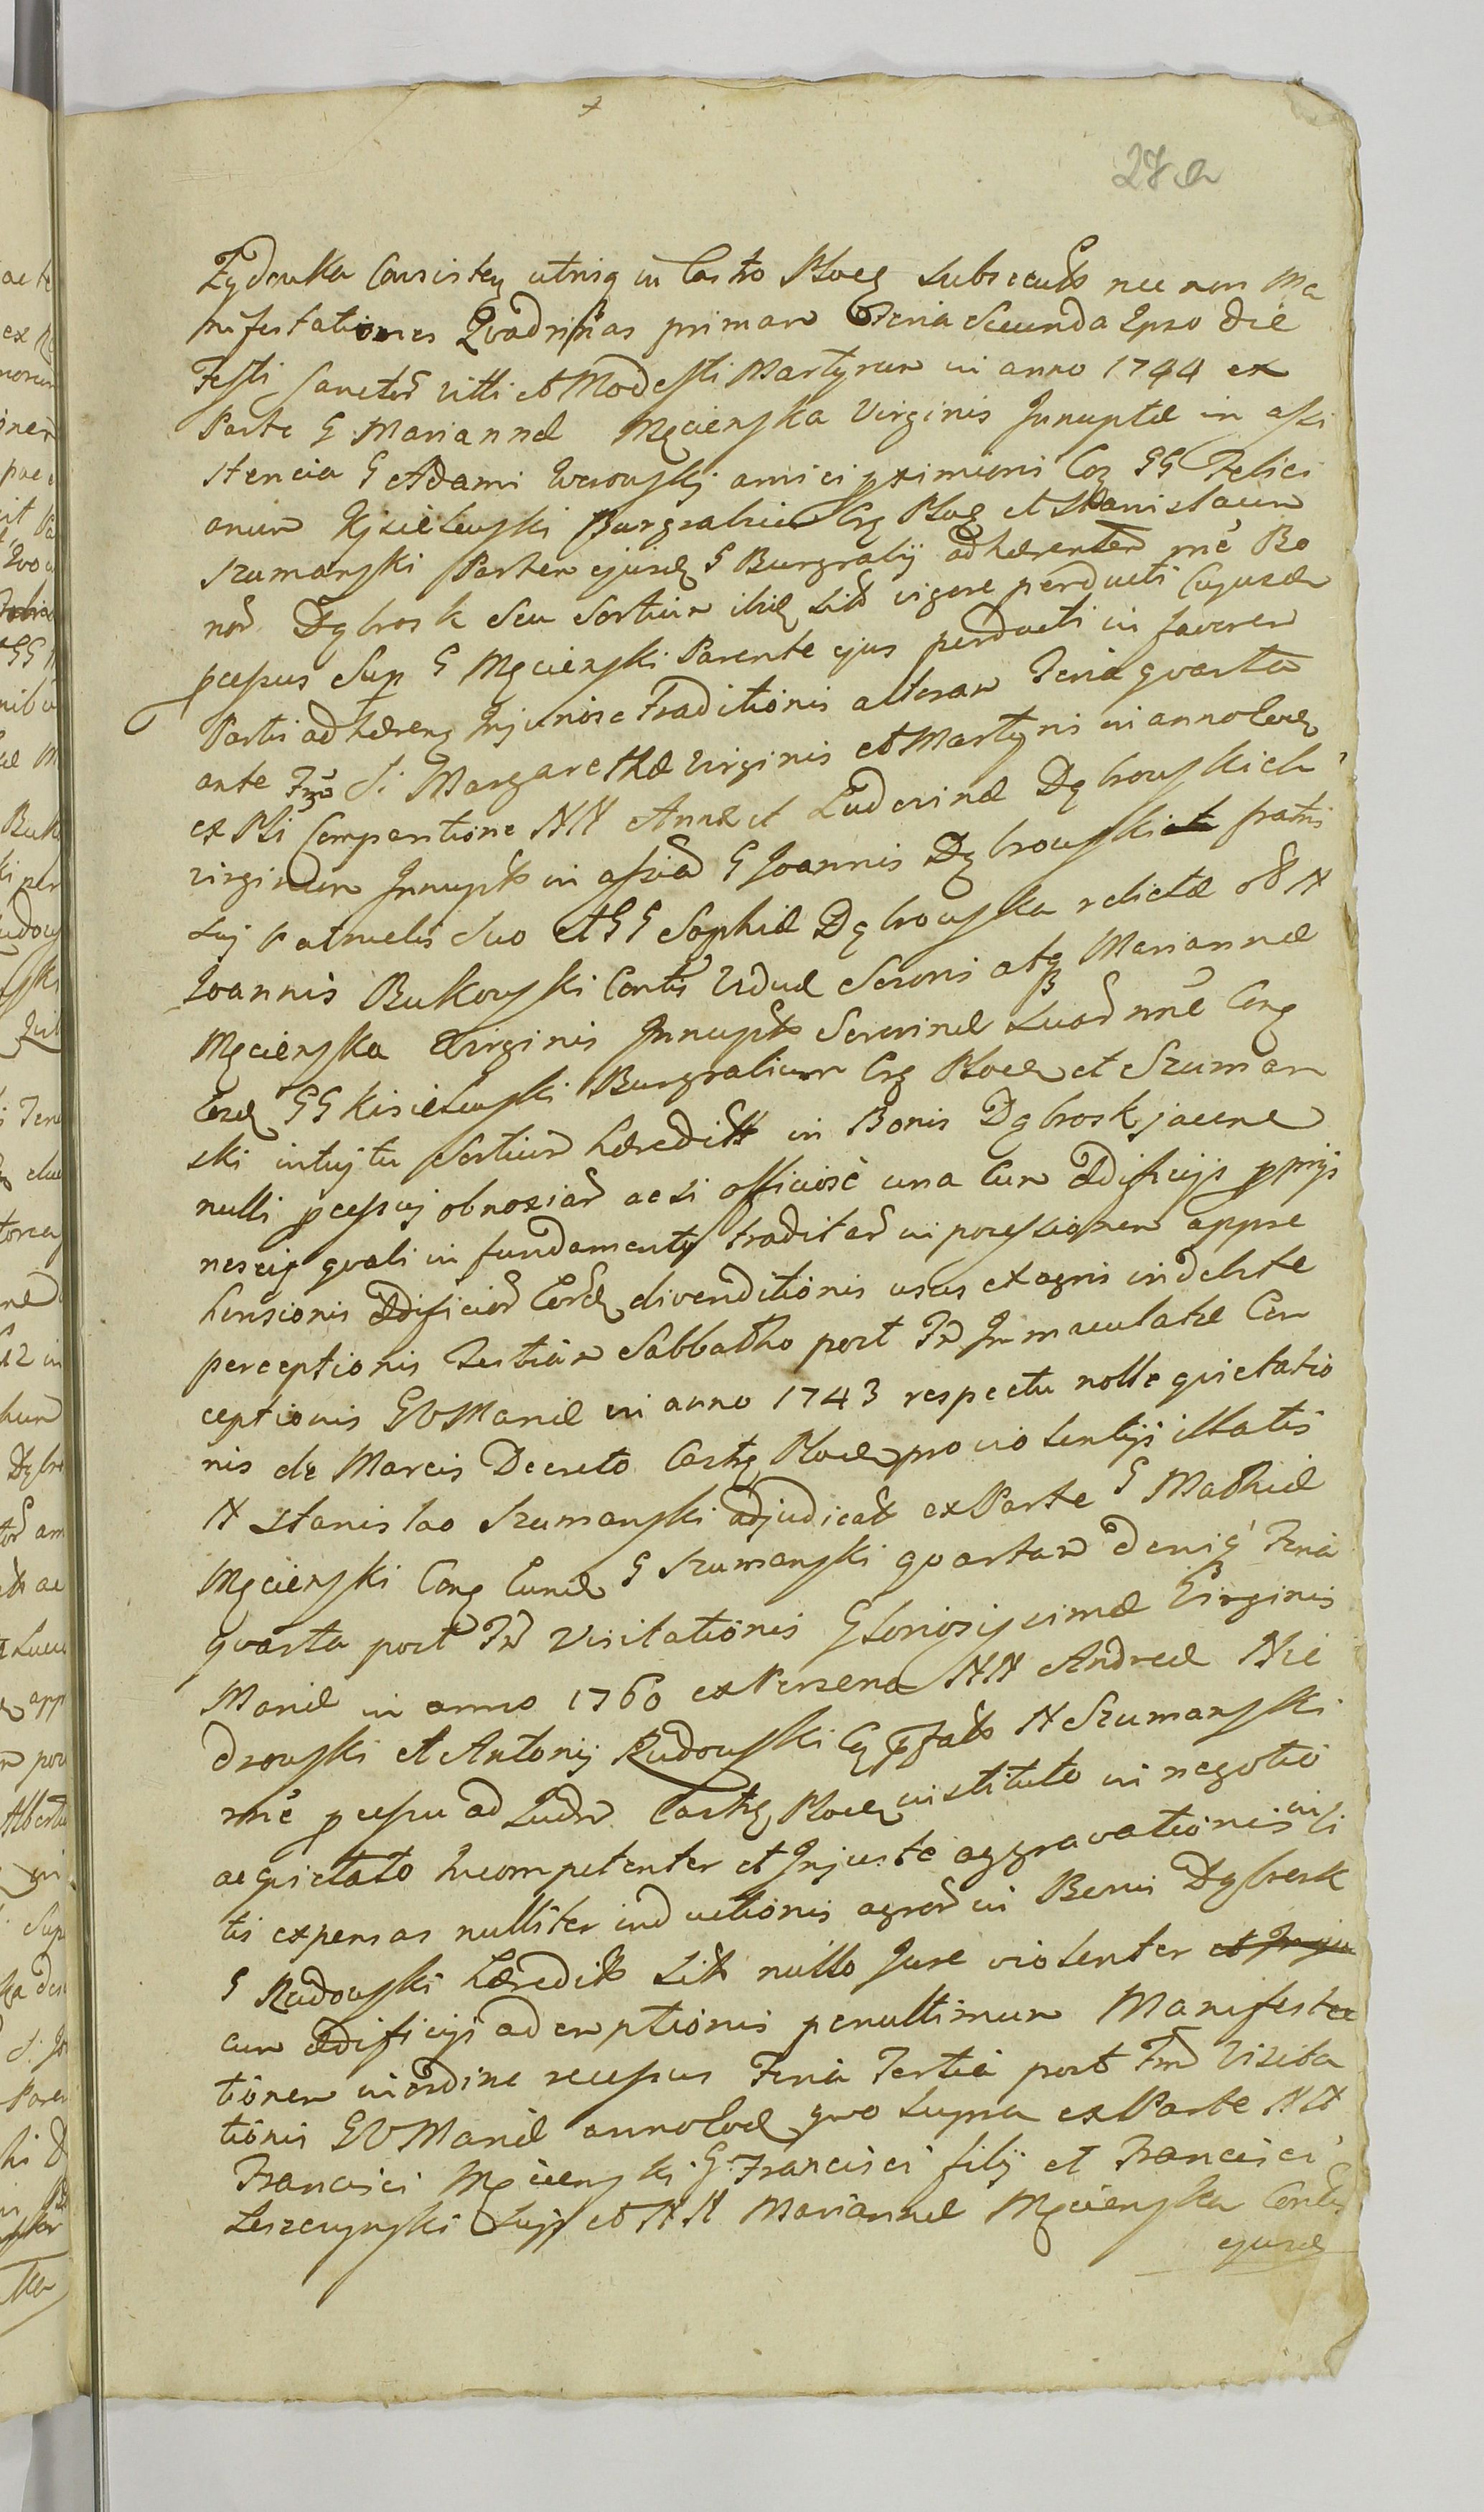 28 a
Zydowka Consistey utrisq in Castro Ploc̃ Subsecut̃ nec non Ma
nifestationes Qvadrinas primam Feria Secunda Ipso die
Festi Sanctor̃ Vitti et Modesti Martyrum in anno 1744 ex
Parte G Mariannæ Mącieńska Virginis Innuptæ in assi
stencia G Adami amici proximioris Con GG Felici
anum Kisielewski Burgrabium Crg Ploc̃ et Stanislaum
Szumański Partem ejusd G Burgrabij adhærentem rñe Bo
nor̃ Dąbrosk Seu Sortium ibid Sit̃ vigore perducti Cujusdam
pcessus Sup G Mącieński Parente ejus perducti in favorem
Partis adhæreng Injuriose Traditionis alteram Feria qvarta
ante Fm̃ S. Margarethæ Virginis et Martyris in anno Eod
ex Pli Comparitione NN Annæ et Ludovinæ Dąbrowskich
virginum Innupt̃ in assia G Joannis Dąbrowski fratris
sui Patruelis Suo et GG Sophiæ Dąbrowska relictæ olt N
Joannis Bukowski Contis Viduæ Seroris atq Mariannæ
Mącieńska Virginis Innupt̃ Severinæ Suor̃ rñe Cong
Eosd GG Kisielewski Burgrabium Crg Ploc̃ et Szuman
ski intuitu Sortium hæredit̃ in Bonis Dąbrosk jacen
nulli pcessui obnoxiar̃ ac si officiose una Cum Ædificijs pprijs
nescis qvali in fundamento tradit ar̃ in possessionem appre
hensionis Ædificior̃ Eord divenditionis usus ex agris indebite
perceptionis Tertiam Sabbatho post Fm̃ Immaculatæ Con
ceptionis GVMariæ in anno 1743 respectu nolle qvietatio
nis de Marcis Decreto Castrg Ploc̃ pro violentijs illatis
N Stanislao Szumański adjudicat̃ ex Parte G Mathiæ
Mącieński Cong Eund G Szumański qvartam Deniq Feria
qvarta post Fm̃ Visitationis Gloriosissimæ Virginis
Mariæ in anno 1760 ex Persona NN Andreæ Nie
drowski et Antonij Rudowski Cg pfat̃ N Szumański
rñe pcessu ad Judm̃ Castrg Ploc̃ instituto in negotio
acqvietato Incompetenter et Injuste aggravationis in li
tis expensas nulliter inductionis agror̃ in Bonis Dąbrosk
G Rudowski hæredit̃ Sit̃ nullo Jure violenter et Inju
cum ædificijs ademptionis penultimum Manifesta
tionem in ordine recessus Feria Tertia post Fm̃ Visita
tionis GVMariæ anno Eod qvo Supra ex Parte NN
Francisci Mącieński G Francisci filij et Francisci
Leszczynski Suij et NN Mariannæ Mącieńska Contis
ejusd